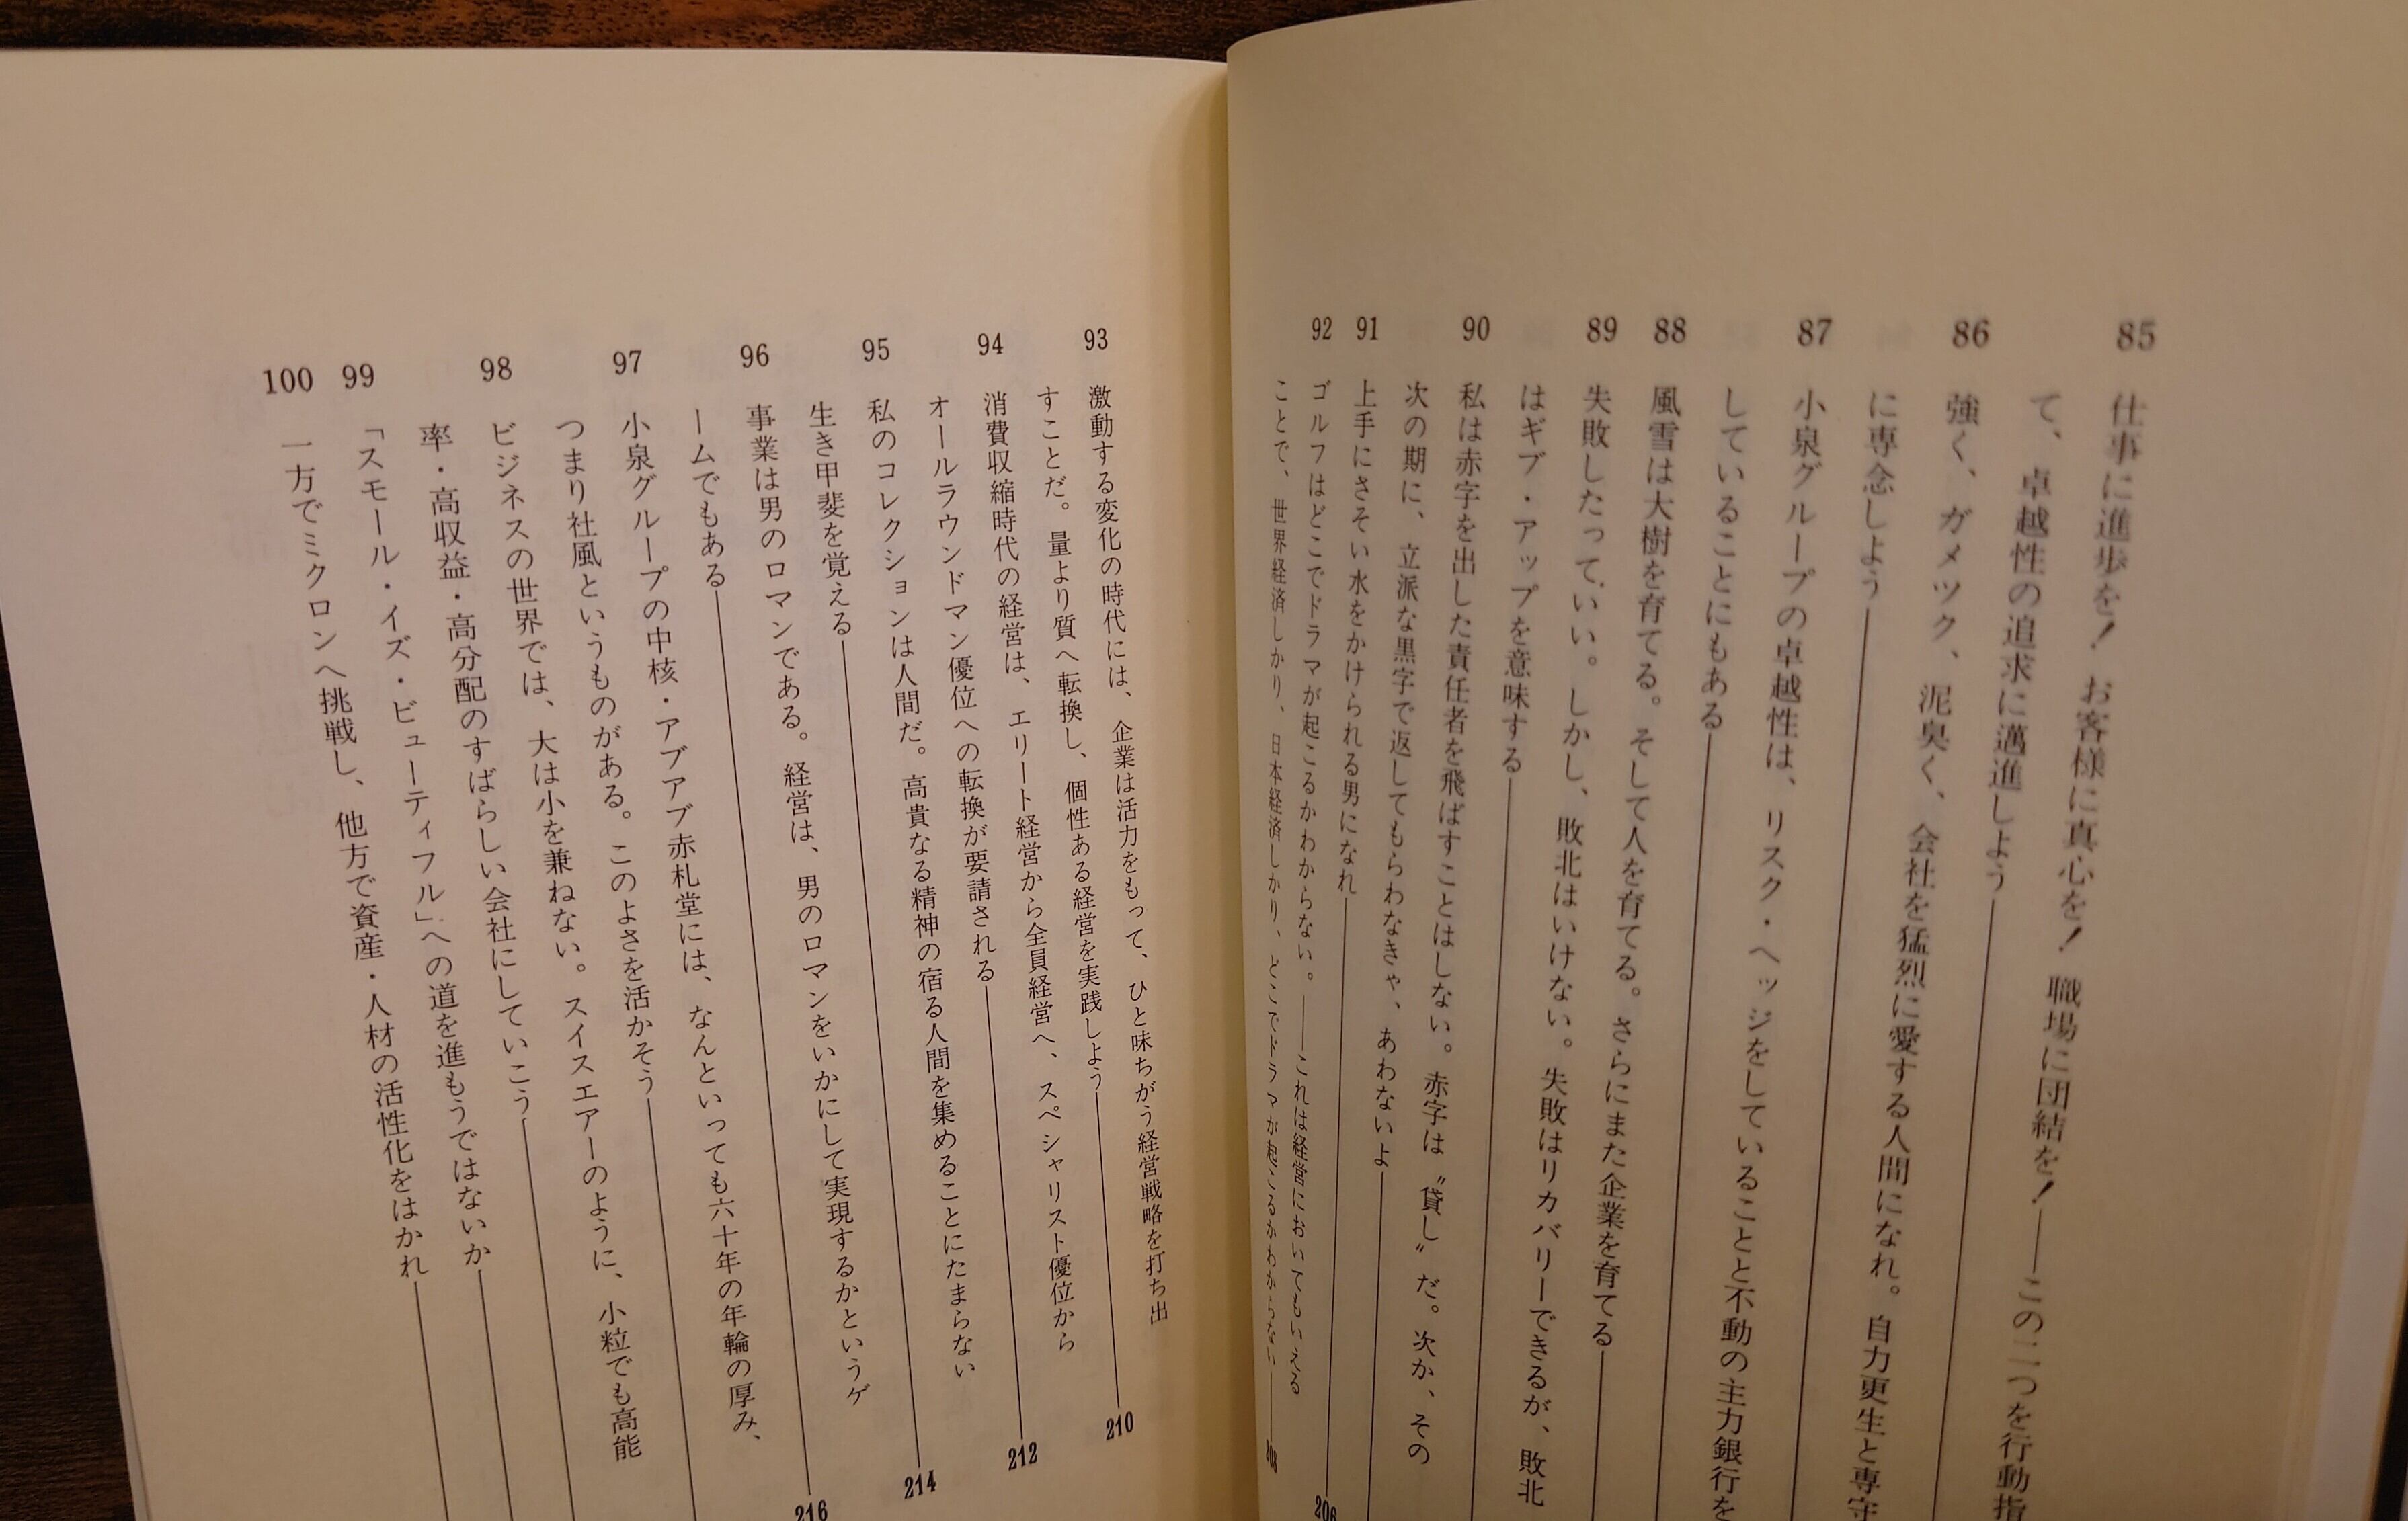 85 仕事に進歩を! お客様に真心を! 職場に団結を!――この二つを行動指
て、卓越性の追求に邁進しよう
86 強く、ガメツク、泥臭く、会社を猛烈に愛する人間になれ。自力更生と専守
に専念しよう
87 小泉グループの卓越性は、リスク・ヘッジをしていることと不動の主力銀行を
していることにもある
88 風雪は大樹を育てる。そして人を育てる。さらにまた企業を育てる
89 失敗したって、いい。しかし、敗北はいけない。失敗はリカバリーできるが、敗北
はギブ・アップを意味する
90 私は赤字を出した責任者を飛ばすことはしない。赤字は〝貸し〟だ。次か、その
次の期に、立派な黒字で返してもらわなきゃ、あわないよ
91 上手にさそい水をかけられる男になれ 206
92 ゴルフはどこでドラマが起こるかわからない。――これは経営においてもいえる
ことで、世界経済しかり、日本経済しかり、どこでドラマが起こるかわからない 208
93 激動する変化の時代には、企業は活力をもって、ひと味ちがう経営戦略を打ち出
すことだ。量より質へ転換し、個性ある経営を実践しよう 210
94 消費収縮時代の経営は、エリート経営から全員経営へ、スペシャリスト優位から
オールラウンドマン優位への転換が要請される 212
95 私のコレクションは人間だ。高貴なる精神の宿る人間を集めることにたまらない
生き甲斐を覚える 214
96 事業は男のロマンである。経営は、男のロマンをいかにして実現するかというゲ
ームでもある 216
97 小泉グループの中核・アブアブ赤札堂には、なんといっても六十年の年輪の厚み、
つまり社風というものがある。このよさを活かそう
98 ビジネスの世界では、大は小を兼ねない。スイスエアーのように、小粒でも高能
率・高収益・高分配のすばらしい会社にしていこう
99 「スモール・イズ・ビューティフル」への道を進もうではないか
100 一方でミクロンへ挑戦し、他方で資産・人材の活性化をはかれ